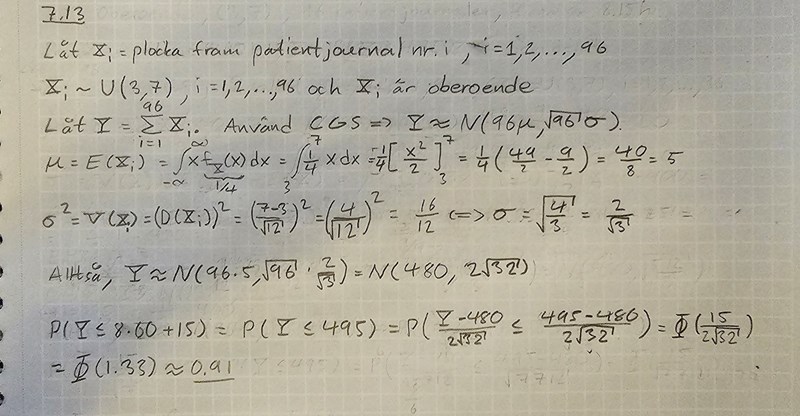 7.13
Låt X_i = plocka fram patientjournal nr. i, i=1,2,...,96
X_i ~ U(3,7), i=1,2,...,96 och X_i är oberoende
Låt Y = ∑_{i=1}^{96} X_i. Använd CGS => Y ≈ N(96μ, √96 σ).
μ = E(X_i) = ∫_{-∞}^{∞} x f_X(x) dx = ∫_3^7 1/4 x dx = 1/4 [x²/2]_3^7 = 1/4 (49/2 - 9/2) = 40/8 = 5
1/4
σ² = V(X_i) = (D(X_i))² = (7-3/√12)² = (4/√12)² = 16/12 <=> σ = √(4/3) = 2/√3
Alltså, Y ≈ N(96·5, √96 · 2/√3) = N(480, 2√32)
P(Y ≤ 8·60+15) = P(Y ≤ 495) = P(Y-480/2√32 ≤ 495-480/2√32) = Φ(15/2√32)
= Φ(1.33) ≈ 0.91